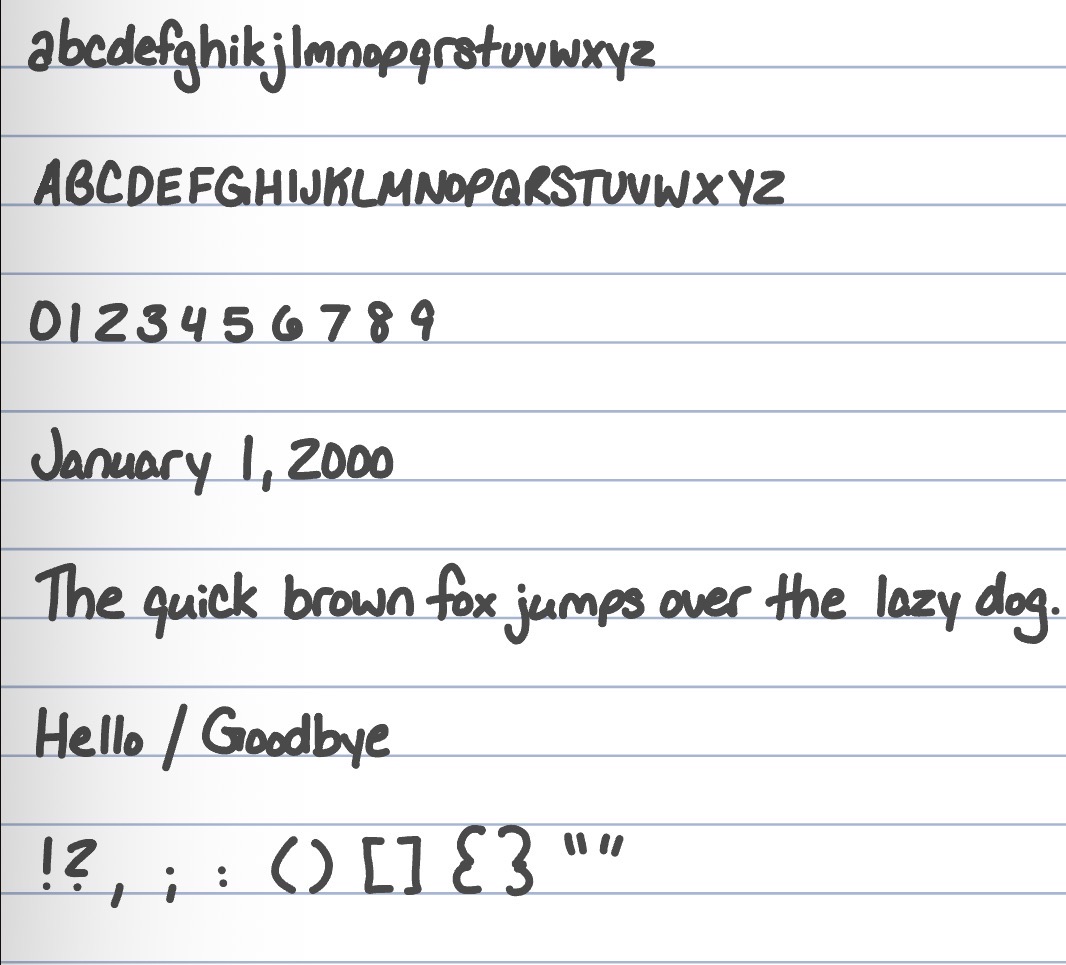 abcdefghikjlmnopqrstuvwxyz
ABCDEFGHIJKLMNOPQRSTUVWXYZ
0 1 2 3 4 5 6 7 8 9
January 1, 2000
The quick brown fox jumps over the lazy dog.
Hello / Goodbye
!?, ; : () [] {} “”